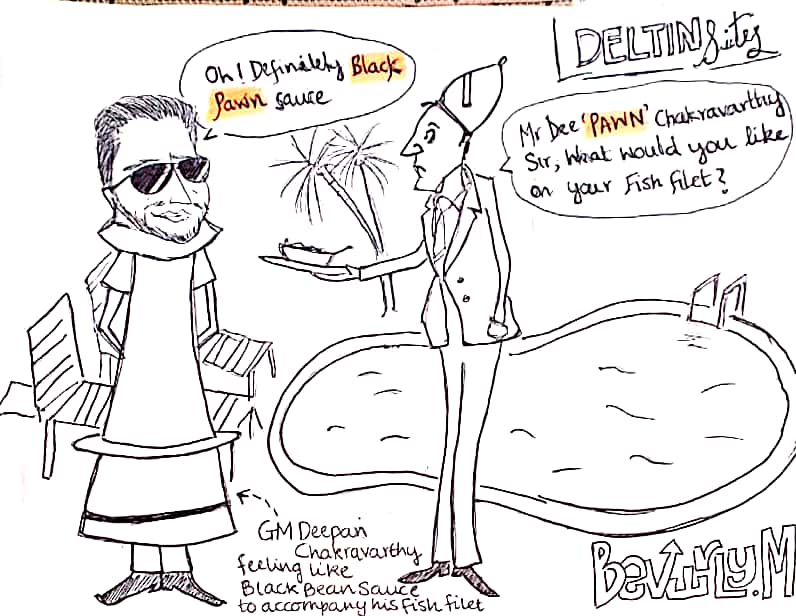 DELTIN Suites
Oh! Definitely Black
Pawn sauce
Mr Dee 'PAWN' Chakravarthy
Sir, What would you like
on your Fish filet?
GM Deepan
Chakravarthy
feeling like
Black Bean Sauce
to accompany his fish filet
BEVERLY.M